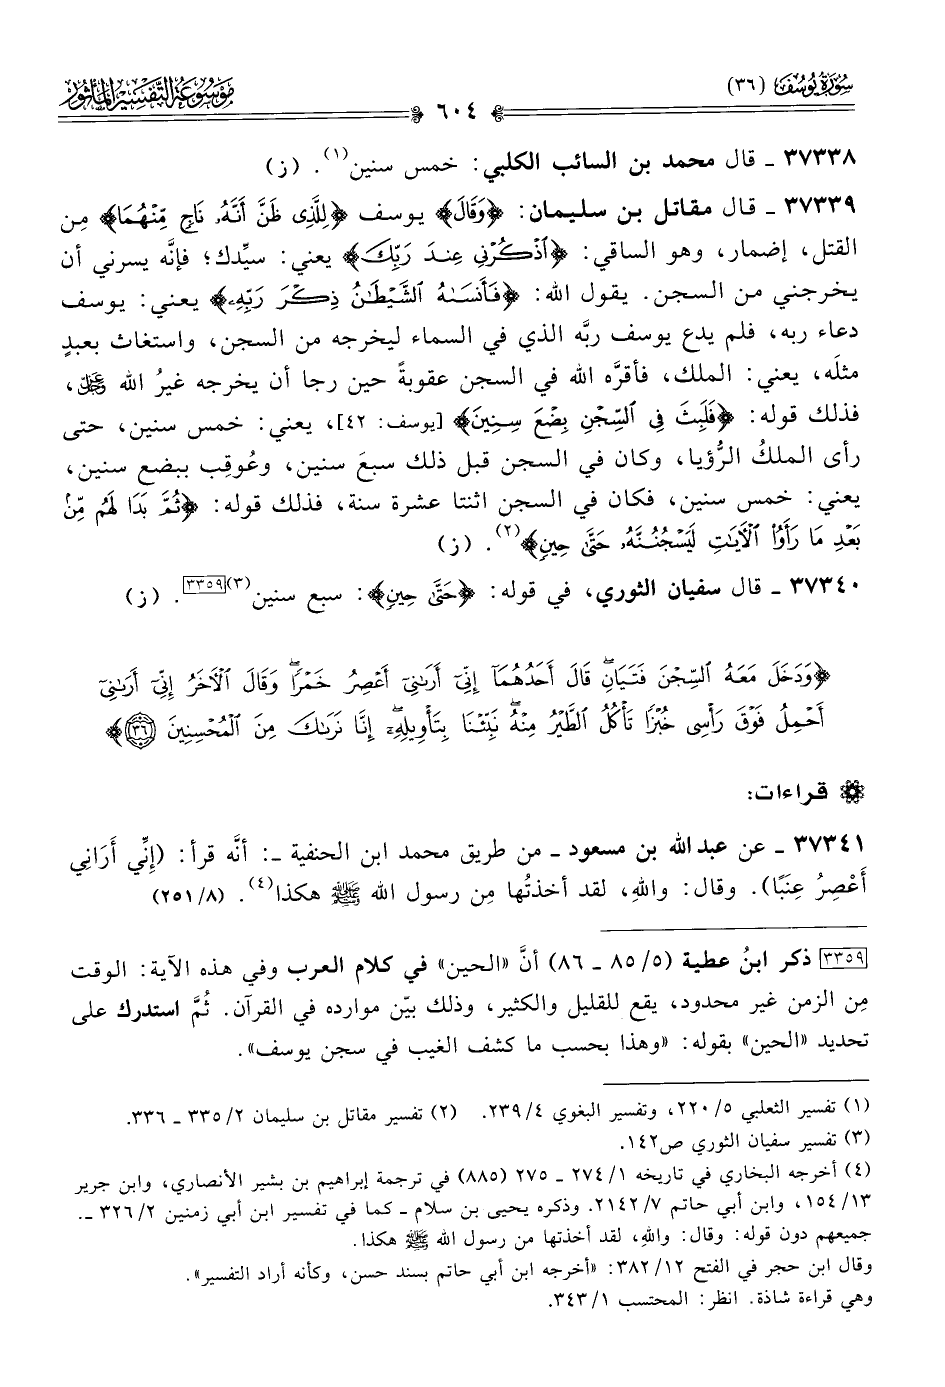 سُورَةُ يُوسُفَ (٣٦)
٦٠٤
مَوْسُوعَة التَّفْسِيرِ المَأْثُورِ
٣٧٣٣٨ ـ قال محمد بن السائب الكلبي: خمس سنين(١). (ز)
٣٧٣٣٩ ـ قال مقاتل بن سليمان: ﴿وَقَالَ﴾ يوسف ﴿لِلَّذِى ظَنَّ أَنَّهُۥ نَاجٍ مِّنْهُمَا﴾ مِن
القتل، إضمار، وهو الساقي: ﴿ٱذْكُرْنِى عِندَ رَبِّكَ﴾ يعني: سيِّدك؛ فإنَّه يسرني أن
يخرجني من السجن. يقول الله: ﴿فَأَنسَىٰهُ ٱلشَّيْطَـٰنُ ذِكْرَ رَبِّهِۦ﴾ يعني: يوسف
دعاء ربه، فلم يدع يوسف ربَّه الذي في السماء ليخرجه من السجن، واستغاث بعبدٍ
مثلَه، يعني: الملك، فأقرَّه الله في السجن عقوبةً حين رجا أن يخرجه غيرُ الله ﷿،
فذلك قوله: ﴿فَلَبِثَ فِى ٱلسِّجْنِ بِضْعَ سِنِينَ﴾ [يوسف: ٤٢]، يعني: خمس سنين، حتى
رأى الملكُ الرُّؤيا، وكان في السجن قبل ذلك سبعَ سنين، وعُوقِب ببضع سنين،
يعني: خمس سنين، فكان في السجن اثنتا عشرة سنة، فذلك قوله: ﴿ثُمَّ بَدَا لَهُم مِّنۢ
بَعْدِ مَا رَأَوُا۟ ٱلْـَٔايَـٰتِ لَيَسْجُنُنَّهُۥ حَتَّىٰ حِينٍ﴾(٢). (ز)
٣٧٣٤٠ ـ قال سفيان الثوري، في قوله: ﴿حَتَّىٰ حِينٍ﴾: سبع سنين(٣)[٣٣٥٩]. (ز)
﴿وَدَخَلَ مَعَهُ ٱلسِّجْنَ فَتَيَانِ ۖ قَالَ أَحَدُهُمَآ إِنِّىٓ أَرَىٰنِىٓ أَعْصِرُ خَمْرًا ۖ وَقَالَ ٱلْـَٔاخَرُ إِنِّىٓ أَرَىٰنِىٓ
أَحْمِلُ فَوْقَ رَأْسِى خُبْزًا تَأْكُلُ ٱلطَّيْرُ مِنْهُ ۖ نَبِّئْنَا بِتَأْوِيلِهِۦٓ ۖ إِنَّا نَرَىٰكَ مِنَ ٱلْمُحْسِنِينَ ٣٦﴾
قراءات:
٣٧٣٤١ ـ عن عبد الله بن مسعود ـ من طريق محمد ابن الحنفية ـ: أنَّه قرأ: (إِنِّي أَرَانِي
أَعْصِرُ عِنَبًا). وقال: واللهِ، لقد أخذتُها مِن رسول الله ﷺ هكذا(٤). (٨/ ٢٥١)
[٣٣٥٩] ذكر ابنُ عطية (٥/ ٨٥ ـ ٨٦) أنَّ «الحين» في كلام العرب وفي هذه الآية: الوقت
مِن الزمن غير محدود، يقع للقليل والكثير، وذلك بيّن موارده في القرآن. ثُمَّ استدرك على
تحديد «الحين» بقوله: «وهذا بحسب ما كشف الغيب في سجن يوسف».
(١) تفسير الثعلبي ٥/ ٢٢٠، وتفسير البغوي ٤/ ٢٣٩. (٢) تفسير مقاتل بن سليمان ٢/ ٣٣٥ ـ ٣٣٦.
(٣) تفسير سفيان الثوري ص١٤٢.
(٤) أخرجه البخاري في تاريخه ١/ ٢٧٤ ـ ٢٧٥ (٨٨٥) في ترجمة إبراهيم بن بشير الأنصاري، وابن جرير
١٣/ ١٥٤، وابن أبي حاتم ٧/ ٢١٤٢. وذكره يحيى بن سلام ـ كما في تفسير ابن أبي زمنين ٢/ ٣٢٦ ـ.
جميعهم دون قوله: وقال: واللهِ، لقد أخذتها من رسول الله ﷺ هكذا.
وقال ابن حجر في الفتح ١٢/ ٣٨٢: «أخرجه ابن أبي حاتم بسند حسن، وكأنه أراد التفسير».
وهي قراءة شاذة. انظر: المحتسب ١/ ٣٤٣.